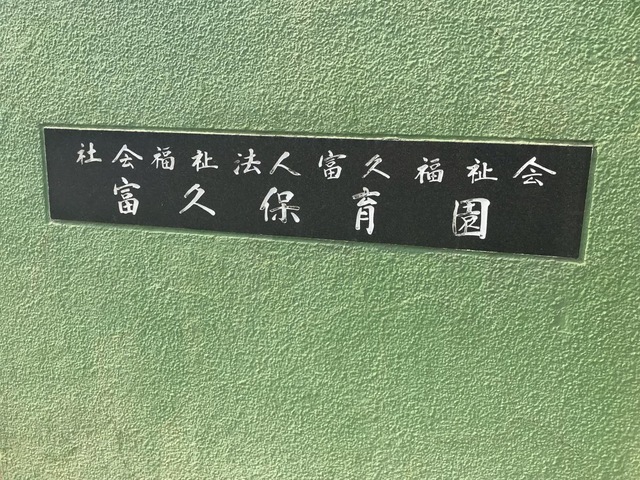 社会福祉法人富久福祉会
富久保育園